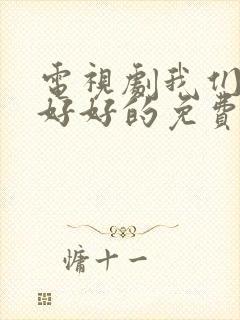 電視劇我们
好好的免費
慵十一